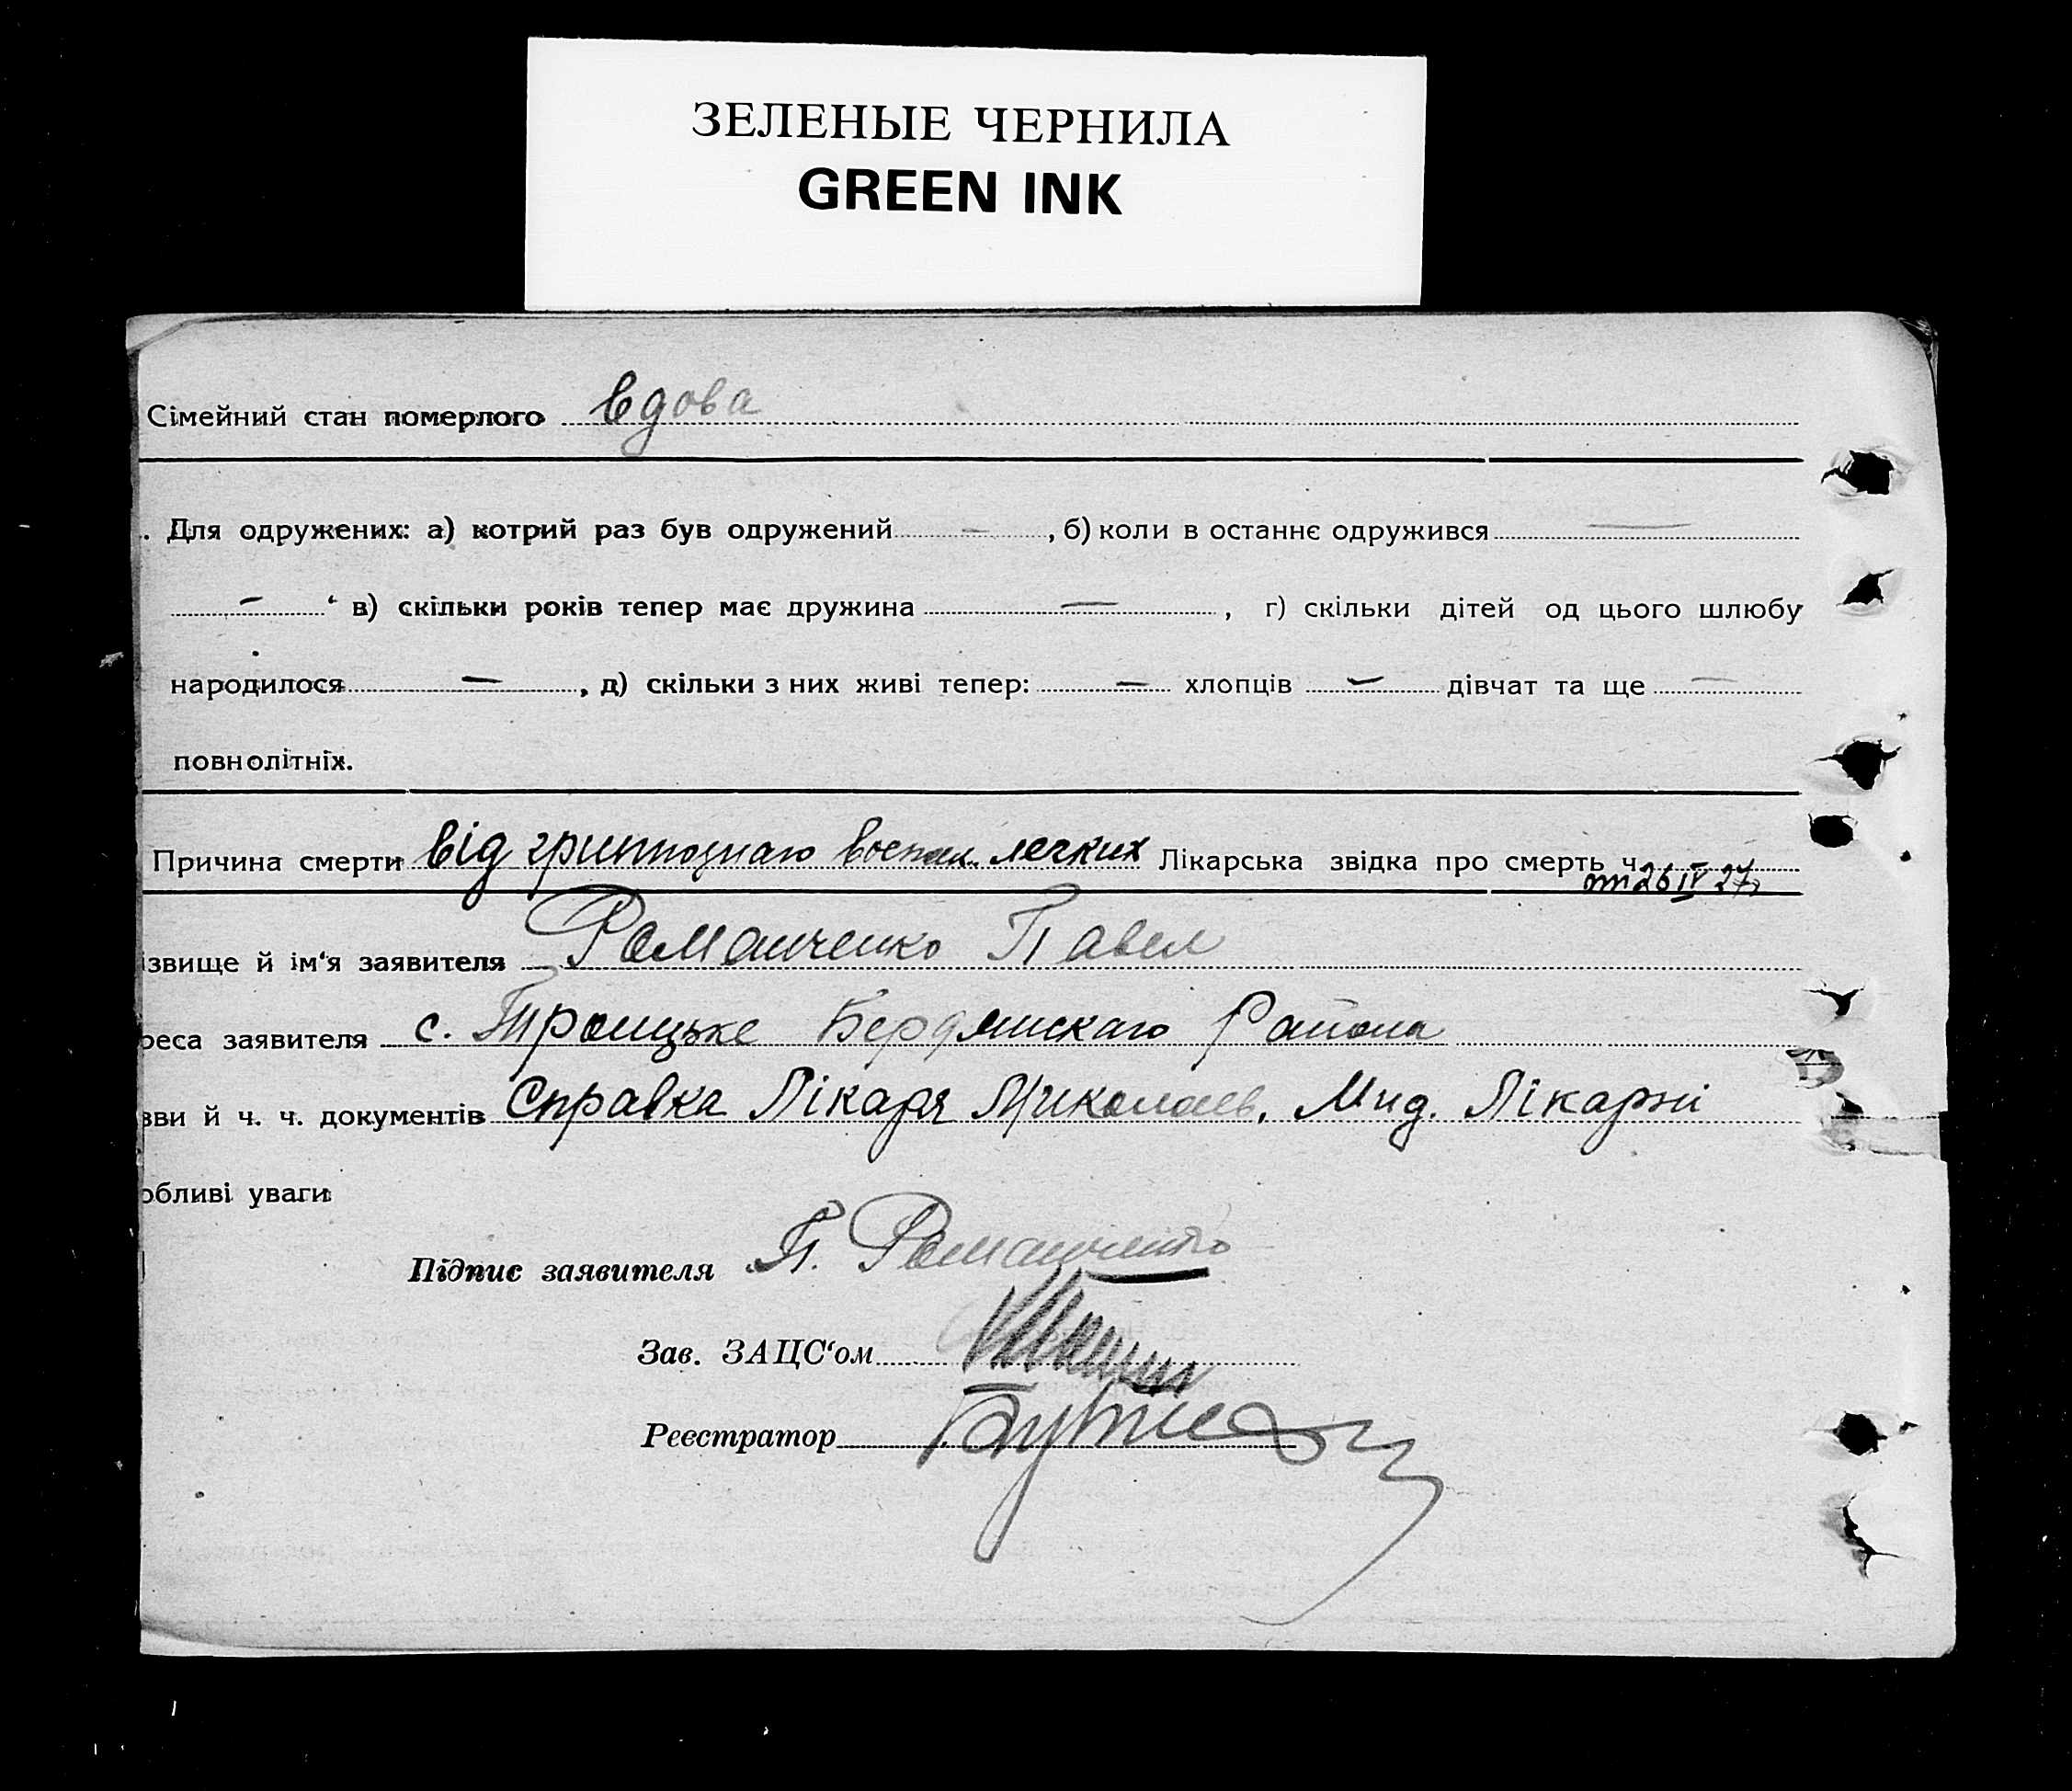 ЗЕЛЕНЫЕ ЧЕРНИЛА
GREEN INK
Сімейний стан померлого вдова
. Для одружених: а) котрий раз був одружений — , б) коли в останнє одружився —
— в) скільки років тепер має дружина — , г) скільки дітей од цього шлюбу
народилося — , д) скільки з них живі тепер: — хлопців — дівчат та ще —
повнолітніх.
Причина смерти від грипознаго воспал. легких Лікарська звідка про смерть ч.
от 26 IV 27
ізвище й ім'я заявителя Романченко Павел
реса заявителя с. Троицьке Бердянскаго Района
зви й ч. ч. документів Справка Лікаря Миколаев. Лікарні
обливі уваги
Підпис заявителя П. Романченко
Зав. ЗАЦС'ом
Реєстратор